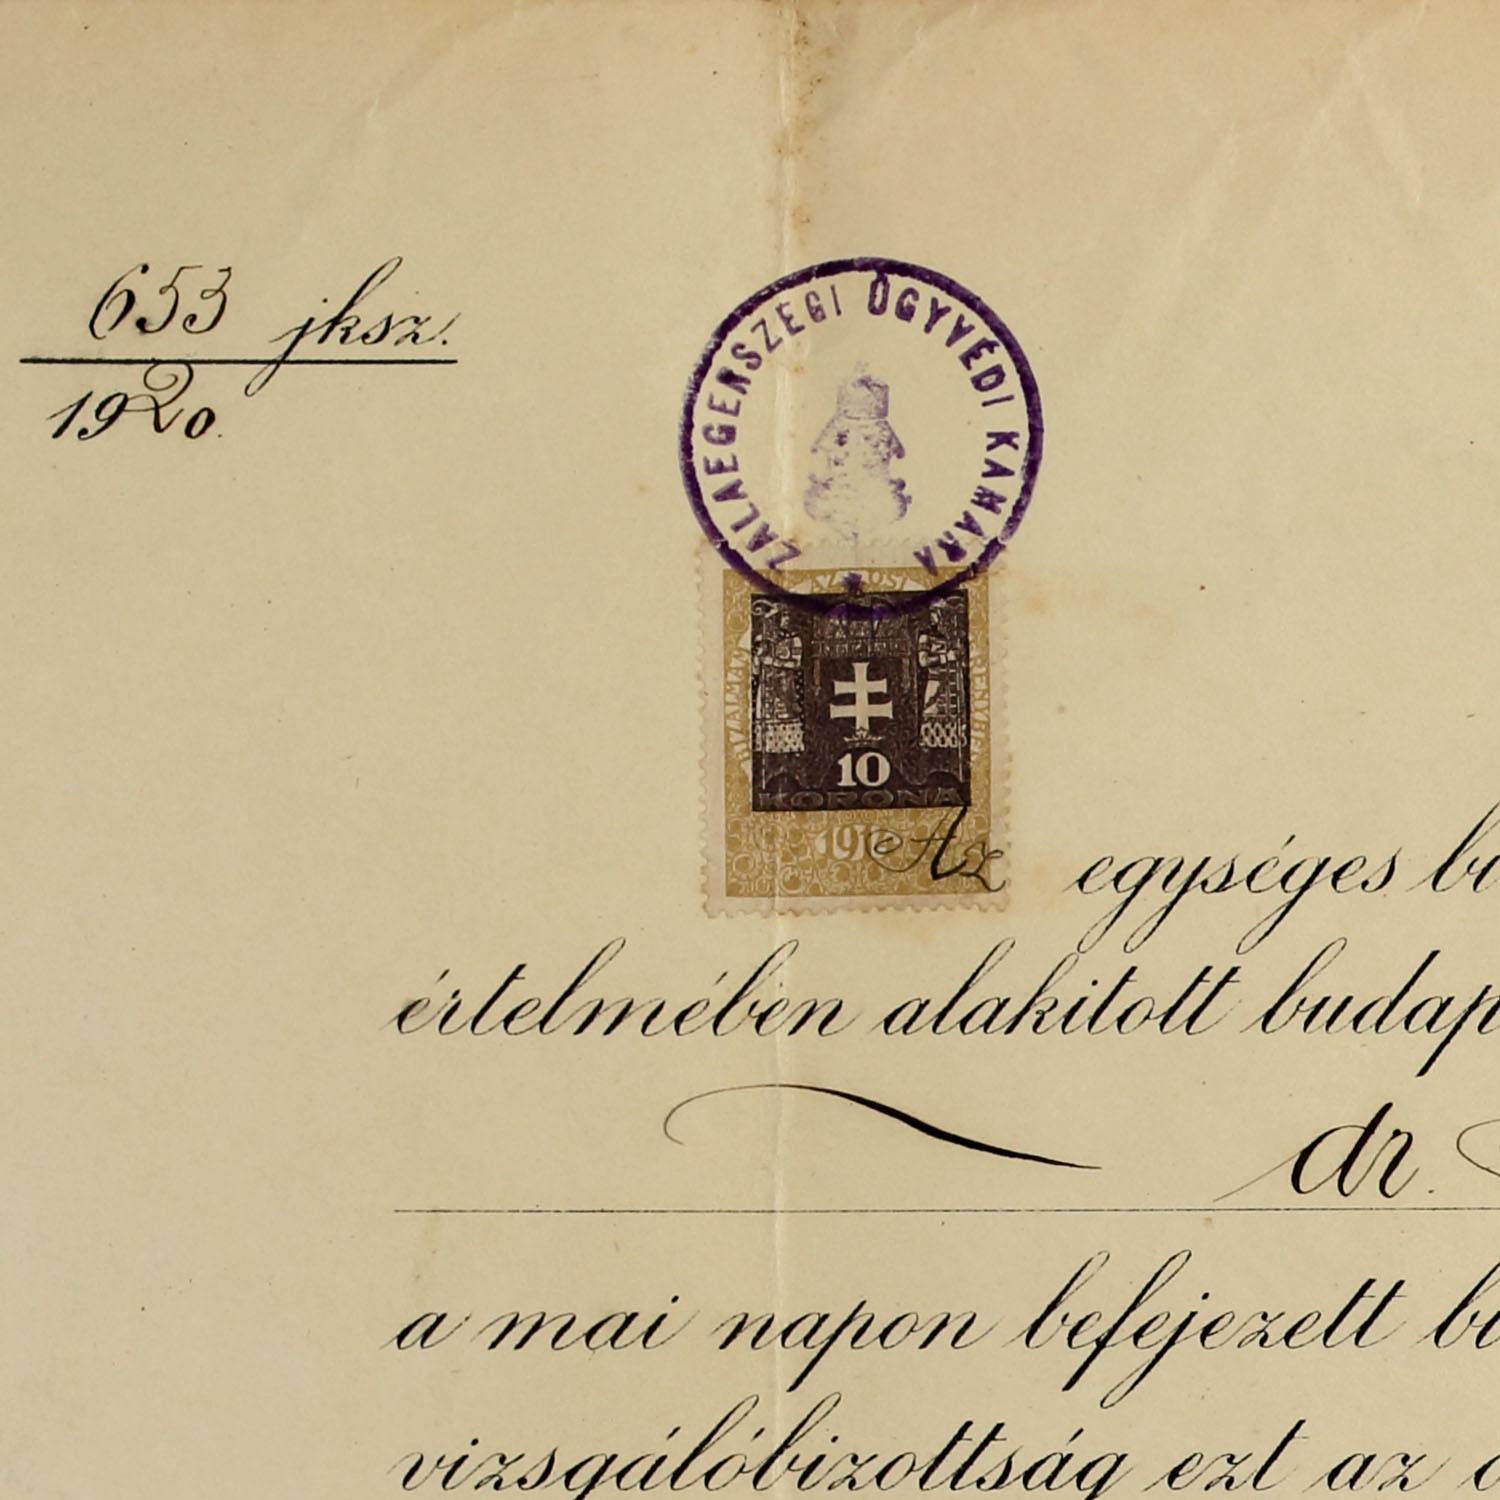 653 jksz.
1920.
ZALAEGERSZEGI ÜGYVÉDI KAMARA
BIZALMI VÁROSI
10
KORONA
Az egységes
értelmében alakitott budap
dr.
a mai napon befejezett
vizsgálóbizottság ezt az